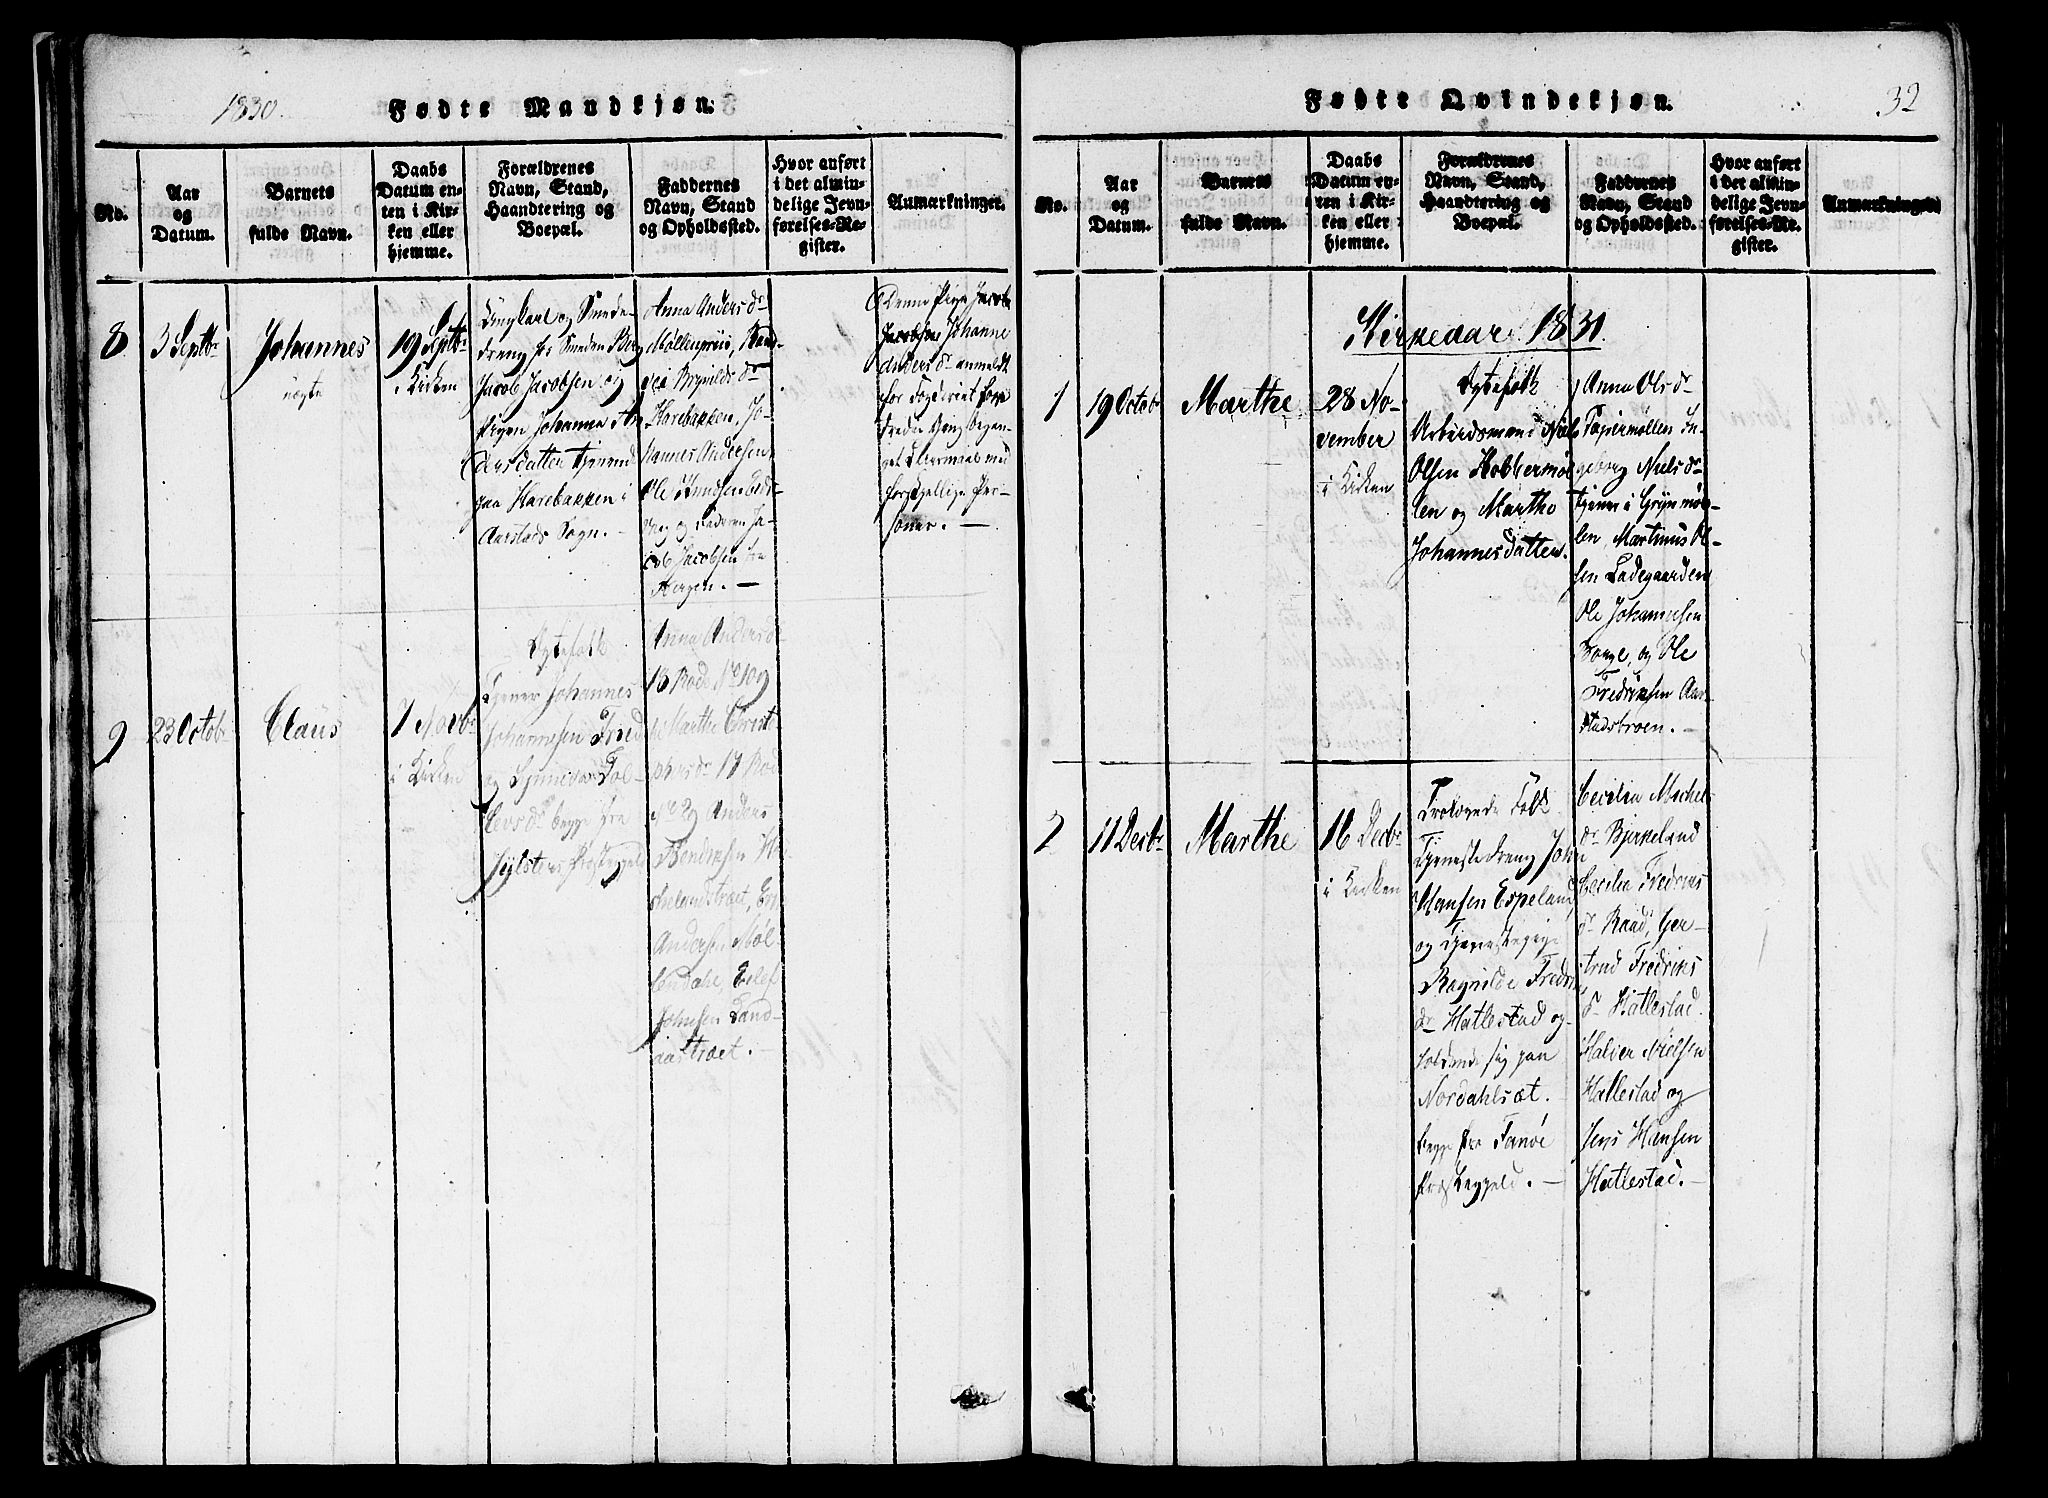 1830.
Fødte Mandkjøn.
No.
Aar
og
Datum.
Barnets
fulde Navn.
Daabs
Datum en-
ten i Kir-
ken eller
hjemme.
Forældrenes
Navn, Stand,
Haandtering og
Boepæl.
Faddernes
Navn, Stand
og Opholdssted.
Hvor anført
i det almin-
delige Jevn-
førelses-Re-
gister.
Anmærkninger.
8
3 Septbr
Johannes
uægte
19 Septbr
i Kirken
Ungkarl og Smede-
dreng hos Smeden Berg
Jacob Jacobsen og
Pigen Johanna An
dersdatter tjenend
paa Harebakken i
Aarstads Sogn.
Anna Anders dr
Møllenpriis,
Brynilds dr
Harebakken, Jo-
hannes Andersen,
Ole Knudsen
og Faderen Ja-
cob Jacobsen fra
Bergen. —
Denne Pige
Jacobsen Johanne
Anders dr anmeldt
for Fogderiet for
tredie Gang began-
get Leiermaal med
forskjellige Per-
soner. —
9
23 Octobr
Claus
7 Novbr
i Kirken
Ægtefolk
Tjener Johannes
Johannesen
og
levs dr begge fra
Præstegjeld
Anna Anders dr
18 Rode No 109
Marthe Christ
ophers dr 17 Rode
No 29 Anders
Bendixsen
Andersen Møl
lendahl,
Johnsen Sand-
Fødte Qvindekjøn.
32
No.
Aar
og
Datum.
Barnets
fulde Navn.
Daabs
Datum en-
ten i Kir-
ken eller
hjemme.
Forældrenes
Navn, Stand,
Haandtering og
Boepæl.
Faddernes
Navn, Stand
og Opholdssted.
Hvor anført
i det almin-
delige Jevn-
førelses-Re-
gister.
Anmærkninger
Kirkeaar 1831.
1
19 Octobr
Marthe
28 No-
vember
i Kirken
Ægtefolk
Arbeidsmand Niels
Olsen Kobbermøl
len og Martha
Johannesdatter.
Anna Ols dr
Papiermøllen In-
geborg Niels dr
tjener i Grynmøl-
len, Martinus Ol-
sen Ladegaarden
Ole Johannesen
og Ole
Fredriksen Aar-
stadsbroen. —
2
11 Decbr
Marthe
16 Decbr
i Kirken
Trolovede Folk
Tjenestedreng John
Hansen Espeland
og Tjenestepige
Ragnilde Fredri
dr Hatlestad op-
holdende sig paa
Nordahlsæt.
begge fra Fanøe
Præstegjeld. —
Cecilia Michels
dr Bjørkeland
Cecilia Fredriks
dr Raad, Ger-
trud Fredriks
dr Hatlestad.
Halver Nielsen
Hatlestad og
Jens Hansen
Hatlestad. —